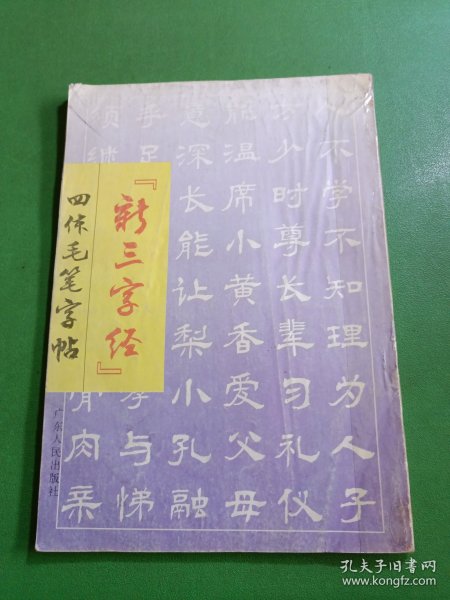 『新三字经』
四体毛笔字帖
广东人民出版社
人不学不知理为人子
方少时尊长辈习礼仪
能温席小黄香爱父母
意深长能让梨小孔融
手足
孝与悌
须继
骨肉亲
孔夫子旧书网
www.kongfz.com